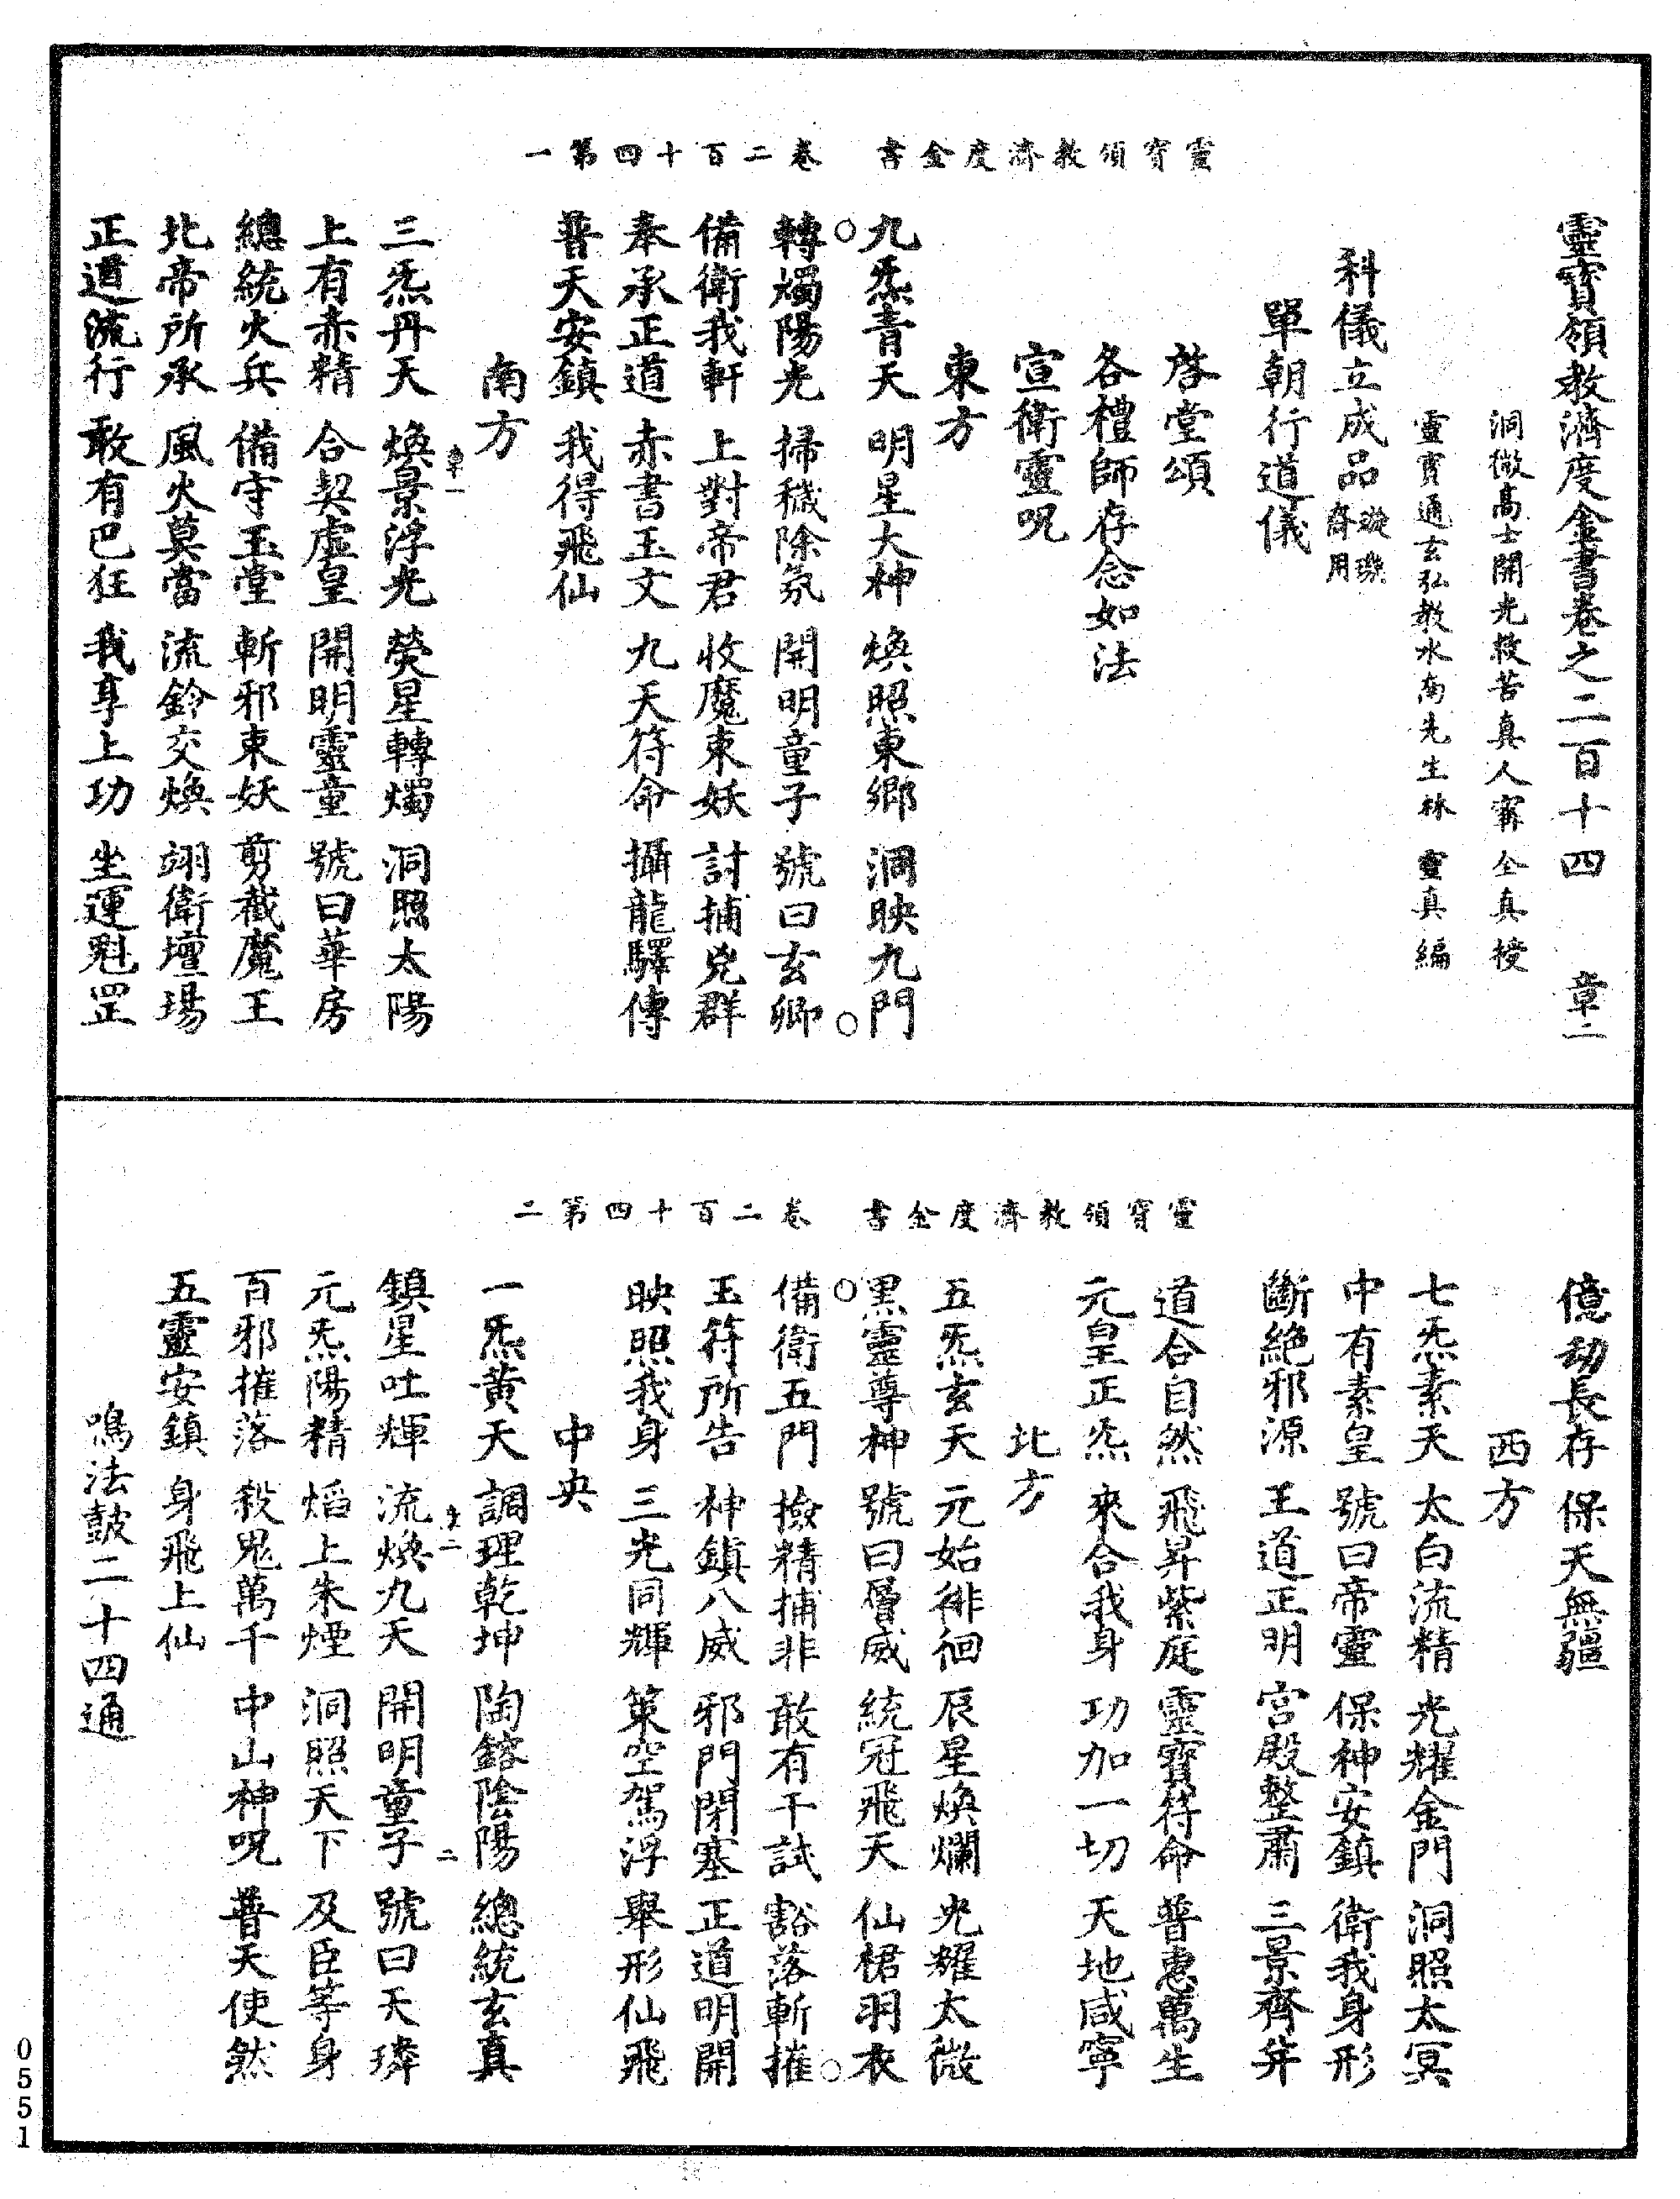 靈寶領教濟度金書　卷二百十四第一
靈寶領教濟度金書卷之二百十四　章二
洞微高士開光救苦真人甯　全真　授
靈寶通玄弘教水南先生林　靈真　編
科儀立成品璇璣齋用
單朝行道儀
啓堂頌
各禮師存念如法
宣衛靈呪
東方
九炁青天　明星大神　煥照東鄉　洞映九門
轉燭陽光　掃穢除氛　開明童子　號曰玄卿
備衛我軒　上對帝君　收魔束妖　討捕兇群
奉承正道　赤書玉文　九天符命　攝龍驛傳
普天安鎮　我得飛仙
南方
三炁丹天　煥景浮光　熒星轉燭　洞照太陽
章一
上有赤精　合契虛皇　開明靈童　號曰華房
總統火兵　備守玉堂　斬邪束妖　剪截魔王
北帝所承　風火莫當　流鈴交煥　翊衛壇場
正道流行　敢有巴狂　我享上功　坐運魁罡
靈寶領教濟度金書　卷二百十四第二
億劫長存　保天無疆
西方
七炁素天　太白流精　光耀金門　洞照太冥
中有素皇　號曰帝靈　保神安鎮　衛我身形
斷絕邪源　王道正明　宮殿整肅　三景齊并
道合自然　飛昇紫庭　靈寶符命　普惠萬生
元皇正炁　來合我身　功加一切　天地咸寧
北方
五炁玄天　元始徘徊　辰星煥爛　光耀太微
黑靈尊神　號曰層威　統冠飛天　仙裙羽衣
備衛五門　撿精捕非　敢有干試　豁落斬摧
玉符所告　神鎮八威　邪門閉塞　正道明開
映照我身　三光同輝　策空駕浮　舉形仙飛
中央
一炁黃天　調理乾坤　陶鎔陰陽　總統玄真
鎮星吐輝　流煥九天　開明童子　號曰天璘
章二
二
元炁陽精　焰上朱煙　洞照天下　及臣等身
百邪摧落　殺鬼萬千　中山神呪　普天使然
五靈安鎮　身飛上仙
鳴法鼓二十四通
0551